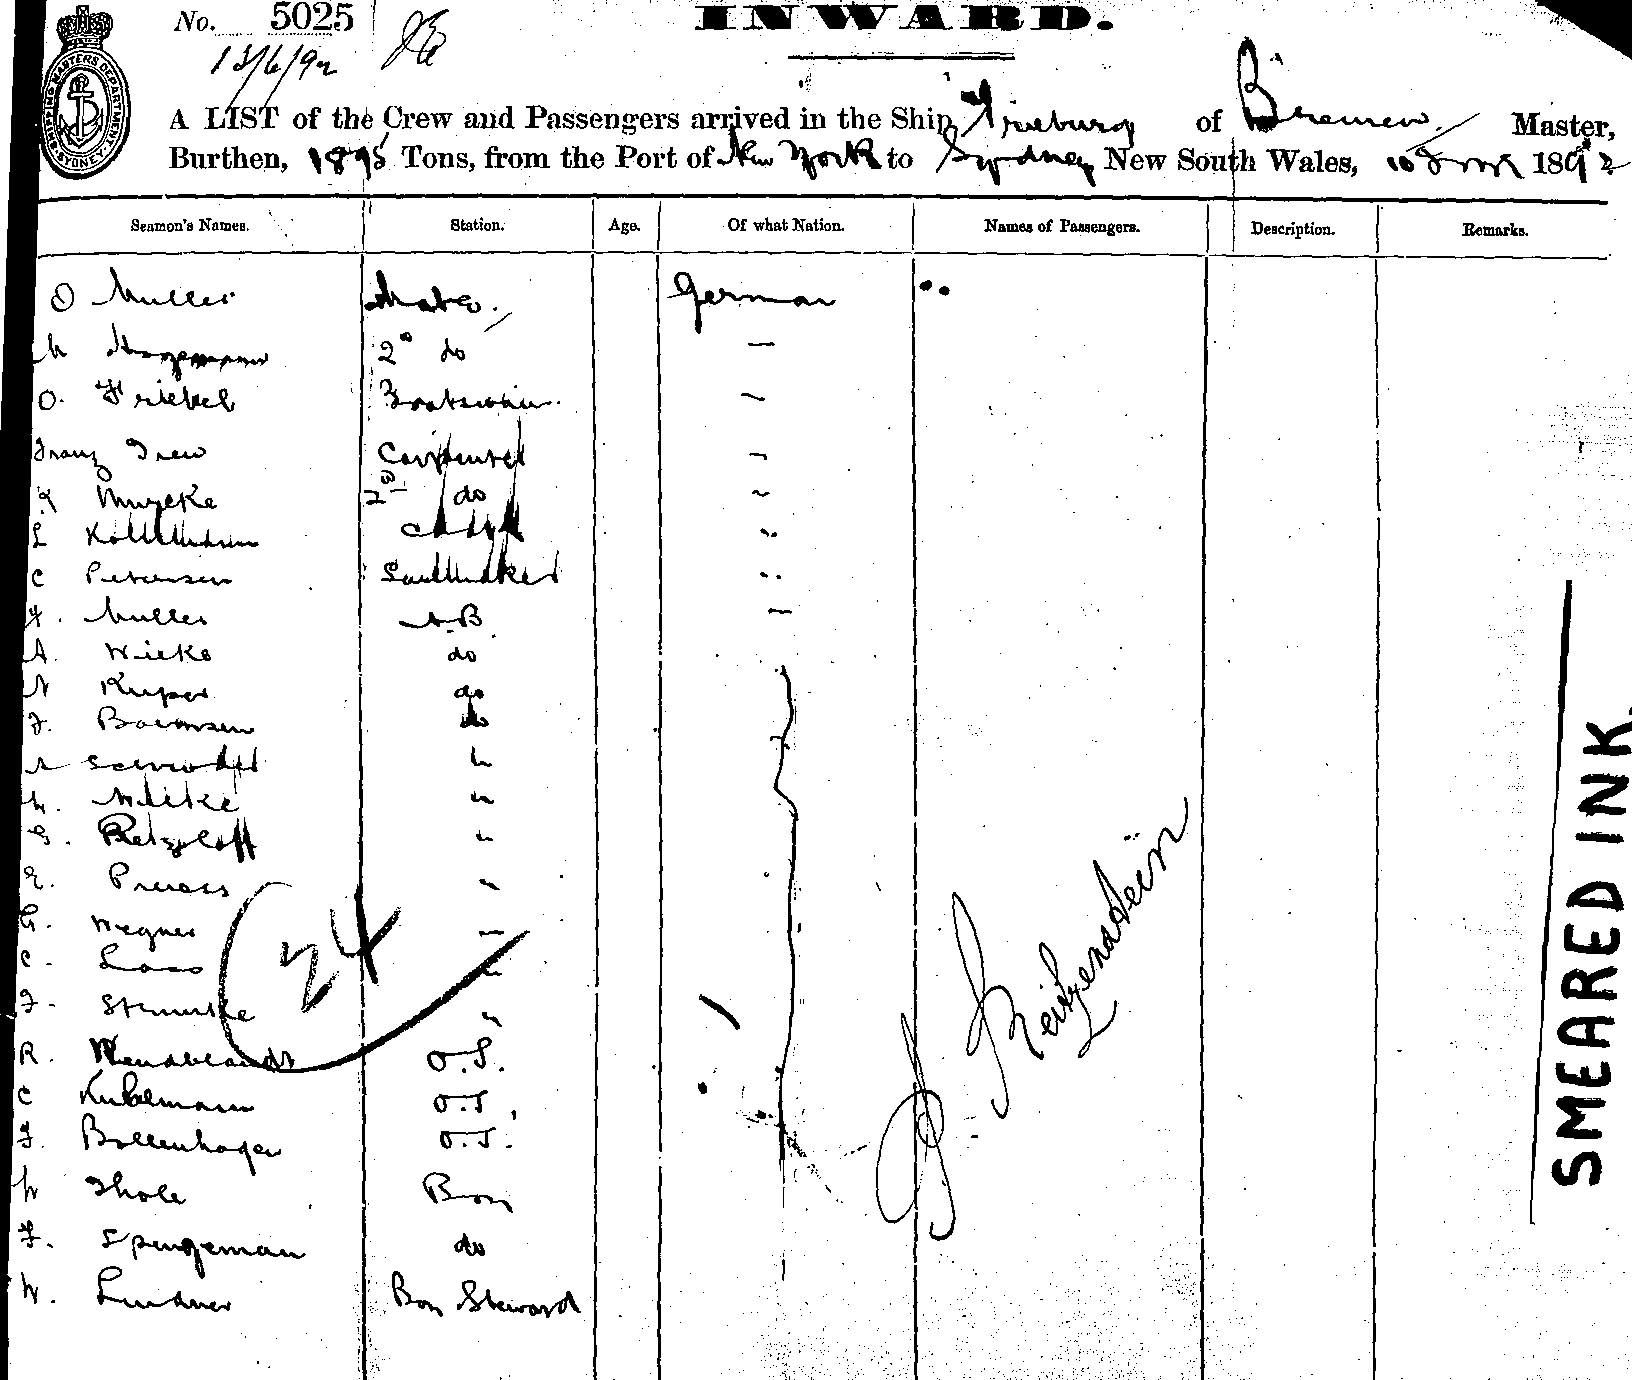 No. 5025
13/6/92
INWARD.
SHIPPING MASTERS DEPARTMENT SYDNEY
A LIST of the Crew and Passengers arrived in the Ship of Bremen Master,
Burthen, 1895 Tons, from the Port of New York to Sydney New South Wales, 10 June 1892
Seamen's Names. Station. Age. Of what Nation. Names of Passengers. Description. Remarks.
O Muller Mate. German
2nd do
O. Frickel Boatswain.
Franz Trew Carpenter
2nd do
L
C Petersen Sailmaker
F. Muller A.B
A. Wicke do
Kuper do
J. do
M.
G. Retzlaff
E. Preuss
G. Wegner
C. Lass
F.
R. Wendblandt O.S.
C Kuhlmann O.S.
F. Bollenhagen O.S.
W Thole Boy
F. Spengeman do
W. Lindner Boy Steward
24
Reitzenstein
SMEARED INK.